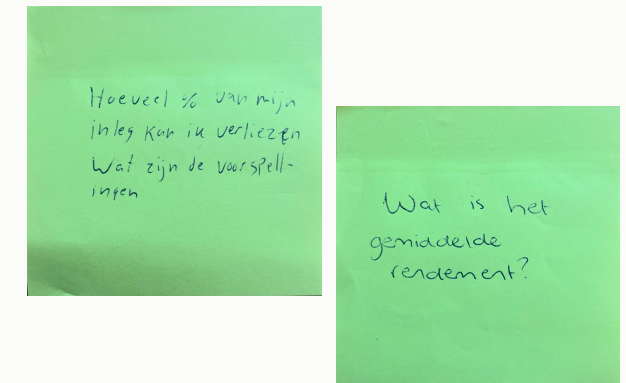 Hoeveel % van mijn
inleg kan ik verliezen
Wat zijn de voorspell-
ingen
Wat is het
gemiddelde
rendement?